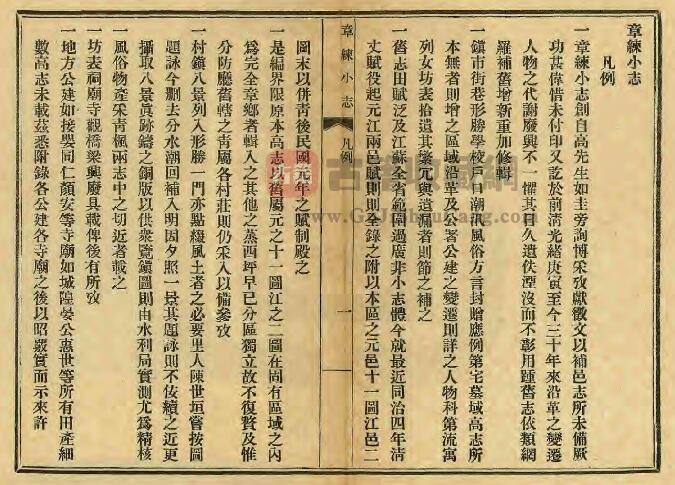 章練小志
凡例
一章練小志創自高先生如圭旁詢博采攷獻徵文以補邑志所未備厥
功甚偉惜未付印又訖於前淸光緒庚寅至今三十年來沿革之變遷
人物之代謝廢興不一懼其日久遺佚湮沒而不彰用踵舊志依類網
羅補舊增新重加修輯
一鎭市街巷形勝學校戶口潮汛風俗方言封贈應例第宅墓域高志所
本無者則增之區域沿革及公署公建之變遷則詳之人物科第流寓
列女坊表拾遺其繁冗與遺漏者則節之補之
一舊志田賦泛及江蘇全省範圍過廣非小志體今就最近同治四年淸
丈賦役起元江兩邑賦則則全錄之附以本區之元邑十一圖江邑二
章練小志
凡例
一
圖末以併靑後民國元年之賦制殿之
一是編界限原本高志以舊屬元之十一圖江之二圖在固有區域之內
爲完全章鄉者輯入之其他之蒸西坪早已分區獨立故不復贅及惟
分防廳舊轄之靑屬各村莊則仍采入以備參攷
一村鎭八景列入形勝一門亦點綴風土者之必要里人陳世垣嘗按圖
題詠今刪去分水潮回補入明因夕照一景其題詠則不佞續之近更
攝取八景眞跡鑄之銅版以供衆覽鎭圖則由水利局實測尤爲精核
一風俗物產采靑楓兩志中之切近者載之
一坊表祠廟寺觀橋梁興廢具載俾後有所攷
一地方公建如接嬰同仁顏安等寺廟如城隍晏公惠世等所有田產細
數高志未載茲悉附錄各公建各寺廟之後以昭嚴實而示來許
古籍收藏網
www.GuJiShuCang.com